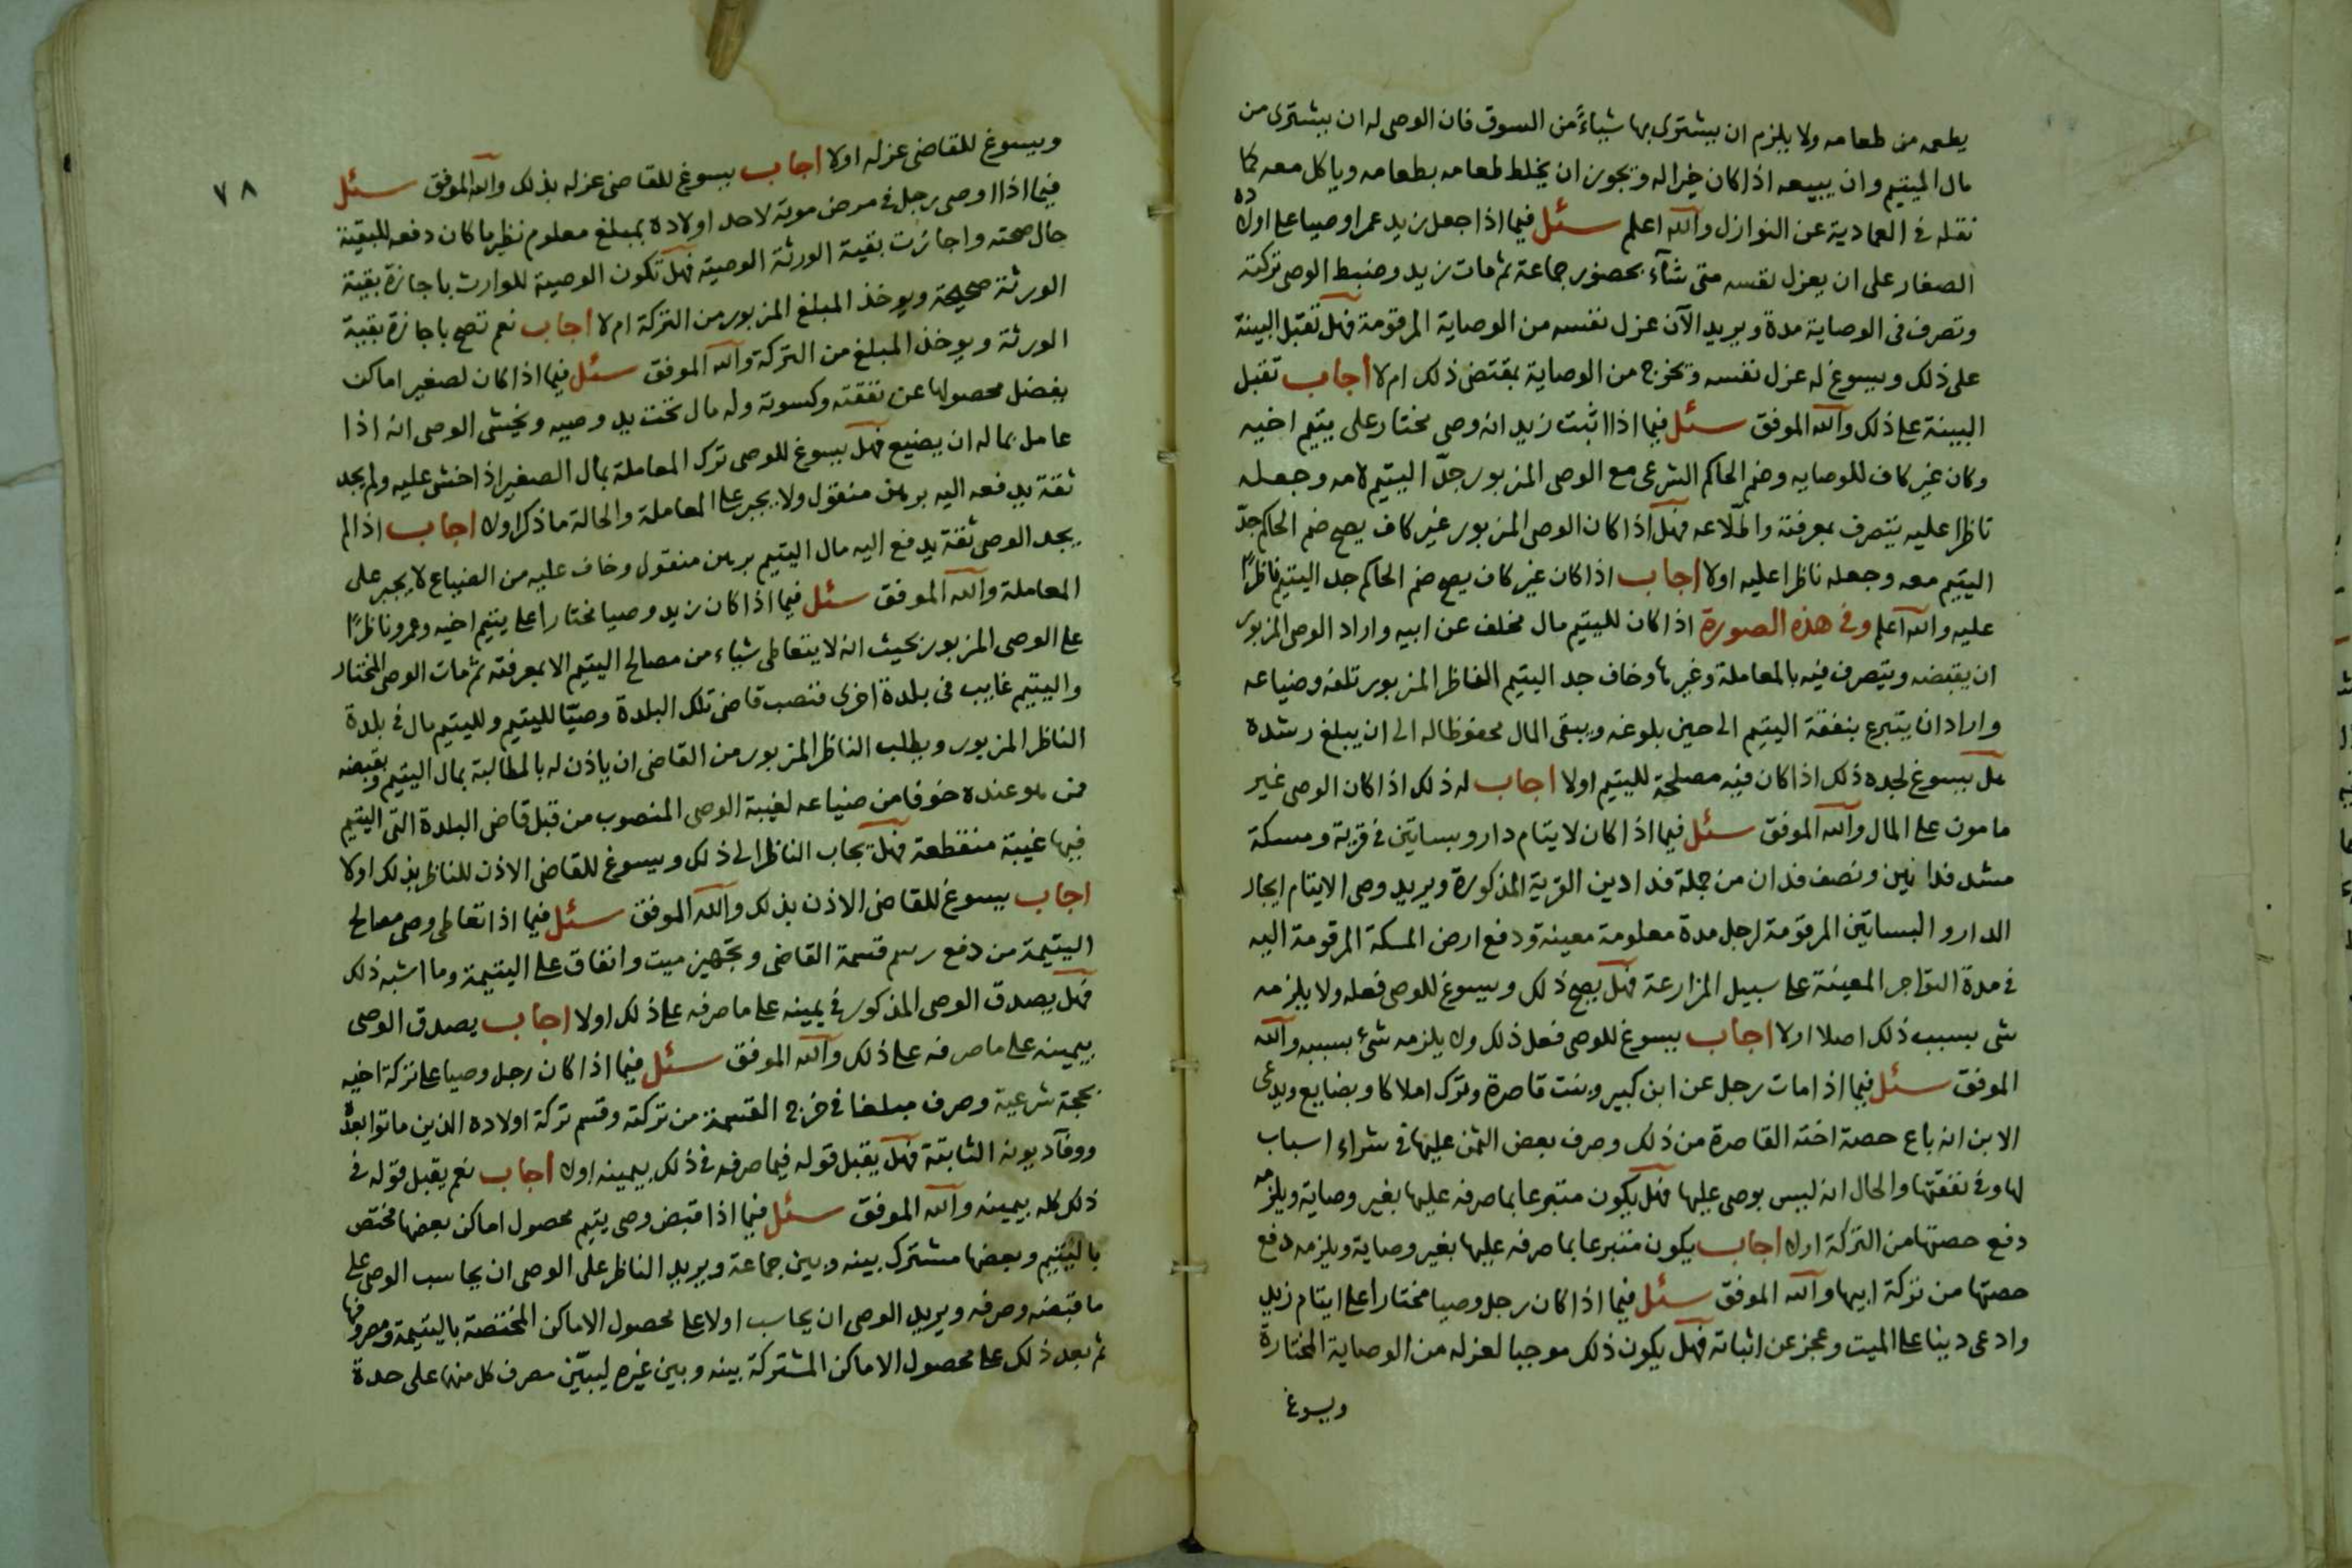 يطعمه من طعامه ولا يلزم ان يشترى بها شياءً من السوق فان الوصى له ان يشترى من
مال اليتيم وان يبيعه اذا كان خيرا له ويجوز ان يخلط طعامه بطعامه وياكل معه كما
نقله فى العمادية عن النوازل والله اعلم سئل فيما اذا جعل زيد عمرا وصيا على اولاده
الصغار على ان يعزل نفسه متى شآء بحضور جماعة ثم مات زيد وضبط الوصى تركته
وتصرف فى الوصاية مدة ويريد الآن عزل نفسه من الوصاية المرقومة فهل تقبل البينة
على ذلك ويسوغ له عزل نفسه ويخرج من الوصاية بمقتضى ذلك ام لا اجاب تقبل
البينة على ذلك والله الموفق سئل فيما اذا اثبت زيد انه وصى مختار على يتيم اخيه
وكان غير كاف للوصايه وضم الحاكم الشرعى مع الوصى المزبور جدّ اليتيم لامه وجعله
ناظرا عليه يتصرف بمعرفته واطّلاعه فهل اذا كان الوصى المزبور غير كاف يصح ضم الحاكم جدّ
اليتيم معه وجعله ناظرا عليه اولا اجاب اذا كان غير كاف يصح ضم الحاكم جد اليتيم ناظرًا
عليه والله اعلم وفى هذه الصورة اذا كان لليتيم مال مخلف عن ابيه واراد الوصى المزبور
ان يقبضه ويتصرف فيه بالمعاملة وغيرها وخاف جد اليتيم الناظر المزبور تلفه وضياعه
واراد ان يتبرع بنفقة اليتيم الى حين بلوغه ويبقى المال محفوظا له الى ان يبلغ رشده
هل يسوغ لجده ذلك اذا كان فيه مصلحة لليتيم اولا اجاب له ذلك اذا كان الوصى غير
مامون على المال والله الموفق سئل فيما اذا كان لايتام دار وبساتين فى قرية ومسكة
مشد فدانين ونصف فدان من جملة فدادين القرية المذكورة ويريد وصى الايتام ايجار
الدار و البساتين المرقومة لرجل مدة معلومة معينة ودفع ارض المسكة المرقومة اليه
فى مدة التواجر المعينة على سبيل المزارعة فهل يصح ذلك ويسوغ للوصى فعله ولا يلزمه
شى بسبب ذلك اصلا اولا اجاب يسوغ للوصى فعل ذلك ولا يلزمه شئ بسببه والله
الموفق سئل فيما اذا مات رجل عن ابن كبير وبنت قاصرة وترك املاكا وبضايع ويدعى
الابن انه باع حصة اخته القاصرة من ذلك وصرف بعض الثمن عليها فى شراء اسباب
لها وفى نفقتها والحال انه ليس بوصى عليها فهل يكون متبرعا بما صرفه عليها بغير وصاية ويلزمه
دفع حصتها من التركة اولا اجاب يكون متبرعا بما صرفه عليها بغير وصاية ويلزمه دفع
حصتها من تركة ابيها والله الموفق سئل فيما اذا كان رجل وصيا مختارا على ايتام زيد
وادعى دينا على الميت وعجز عن اثباته فهل يكون ذلك موجبا لعزله من الوصاية المختارة
ويسوغ
٧٨
ويسوغ للقاضى عزله اولا اجاب يسوغ للقاضى عزله بذلك والله الموفق سئل
فيما اذا اوصى رجل فى مرض موته لاحد اولاده بمبلغ معلوم نظير ما كان دفعه للبقية
حال صحته واجازت بقية الورثة الوصيه فهل تكون الوصية للوارث باجازة بقية
الورثة صحيحة ويوخذ المبلغ المزبور من التركة ام لا اجاب نعم تصح باجازة بقية
الورثة ويوخذ المبلغ من التركة والله الموفق سئل فيما اذا كان لصغير اماكن
يفضل محصولها عن نفقته وكسوته وله مال تحت يد وصيه ويخشى الوصى انه اذا
عامل بماله ان يضيع فهل يسوغ للوصى ترك المعاملة بمال الصغير اذ اخشى عليه ولم يجد
ثقة يدفعه اليه برهن منقول ولا يجبر على المعاملة والحالة ما ذكر اولا اجاب اذا لم
يجد الوصى ثقة يدفع اليه مال اليتيم برهن منقول وخاف عليه من الضياع لا يجبر على
المعاملة والله الموفق سئل فيما اذا كان زيد وصيا مختارا على يتيم اخيه وعمرو ناظرًا
على الوصى المزبور بحيث انه لا يتعاطى شياء من مصالح اليتيم الا بمعرفته ثم مات الوصى المختار
واليتيم غايب فى بلدة اخرى فنصب قاضى تلك البلدة وصيّا لليتيم ولليتيم مال فى بلدة
الناظر المزبور ويطلب الناظر المزبور من القاضى ان ياذن له بالمطالبة بمال اليتيم وبقبضه
ممن هو عنده خوفا من ضياعه لغيبة الوصى المنصوب من قبل قاضى البلدة التى اليتيم
فيها غيبة منقطعة فهل يجاب الناظر الى ذلك ويسوغ للقاضى الاذن للناظر بذلك اولا
اجاب يسوغ للقاضى الاذن بذلك والله الموفق سئل فيما اذا تعاطى وصى مصالح
اليتيمة من دفع رسم قسمة القاضى وتجهيز ميت وانفاق على اليتيمة وما اشبه ذلك
فهل يصدق الوصى المذكور فى يمينه على ما صرفه على ذلك اولا اجاب يصدق الوصى
بيمينه على ما صرفه على ذلك والله الموفق سئل فيما اذا كان رجل وصيا على تركة اخيه
بحجة شرعية وصرف مبلغا فى خرج القسمة من تركته وقسم تركة اولاده الذين ماتوا بعده
ووفآ ديونه الثابتة فهل يقبل قوله فيما صرفه فى ذلك بيمينه اولا اجاب نعم يقبل قوله فى
ذلك كله بيمينه والله الموفق سئل فيما اذا قبض وصى يتيم محصول اماكن بعضها مختص
باليتيم وبعضها مشترك بينه وبين جماعة ويريد الناظر على الوصى ان يحاسب الوصى على
ما قبضه وصرفه ويريد الوصى ان يحاسب اولا على محصول الاماكن المختصة باليتيمة ومصروفها
ثم بعد ذلك على محصول الاماكن المشتركة بينه وبين غيره ليبيّن مصرف كل منها على حدة